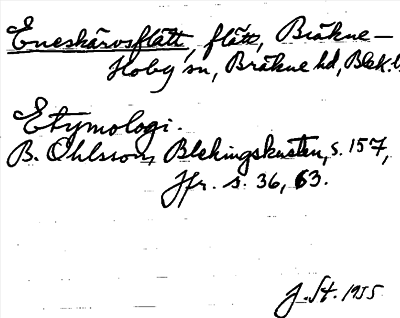 Eneskärvsflätt, flätt, Bräkne-
Hoby sn, Bräkne hd, Blek. l.
Etymologi.
B. Ohlsson, Blekingskusten, s. 157,
Jfr. s. 36, 63.
J. St. 1955